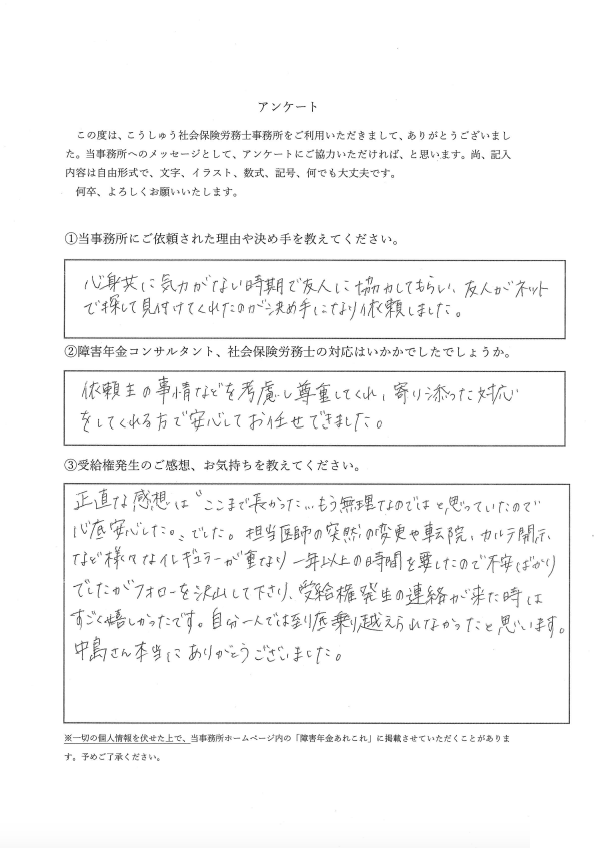 アンケート
この度は、こうしゅう社会保険労務士事務所をご利用いただきまして、ありがとうございまし
た。当事務所へのメッセージとして、アンケートにご協力いただければ、と思います。尚、記入
内容は自由形式で、文字、イラスト、数式、記号、何でも大丈夫です。
何卒、よろしくお願いいたします。
①当事務所にご依頼された理由や決め手を教えてください。
心身共に気力がない時期で友人に協力してもらい、友人がネット
で探して見付けてくれたのが決め手になり依頼しました。
②障害年金コンサルタント、社会保険労務士の対応はいかかでしたでしょうか。
依頼主の事情などを考慮し尊重してくれ、寄り添った対応
をしてくれる方で安心してお任せできました。
③受給権発生のご感想、お気持ちを教えてください。
正直な感想は〝ここまで長かった…もう無理なのではと思っていたので
心底安心した。〟でした。担当医師の突然の変更や転院、カルテ開示
など様々なイレギュラーが重なり一年以上の時間を要したので不安ばかり
でしたがフォローを沢山して下さり、受給権発生の連絡が来た時は
すごく嬉しかったです。自分一人では到底乗り越えられなかったと思います。
中島さん本当にありがとうございました。
※一切の個人情報を伏せた上で、当事務所ホームページ内の「障害年金あれこれ」に掲載させていただくことがありま
す。予めご了承ください。